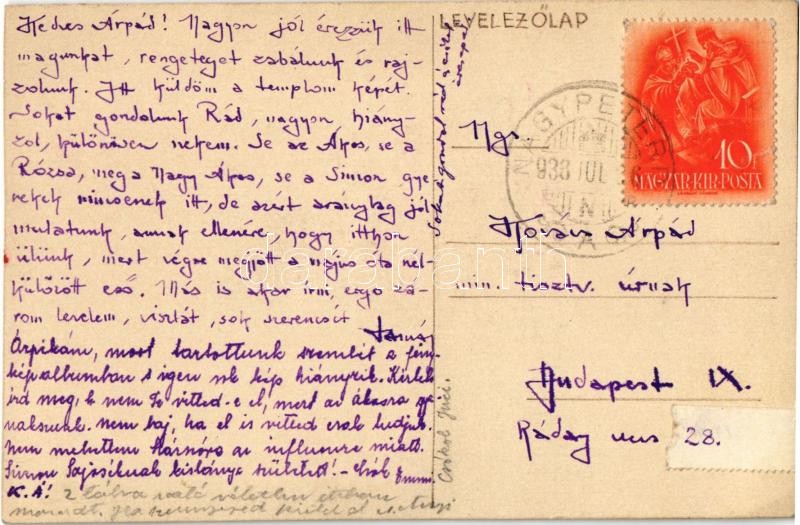 Kedves Árpád! Nagyon jól érezzük itt
magunkat, rengeteget zabálunk és raj-
zolunk. Itt küldöm a templom képét.
Sokat gondolunk Rád, nagyon hiány-
zol, különösen nekem. Se az Ákos, se a
Rózsa, meg a Nagy Ákos, se a Simon gye-
rekek nincsenek itt, de azért aránylag jól
mulatunk, annak ellenére, hogy itthon
ülünk, mert végre megjött a május óta nél-
külözött eső. Más is akar írni, ergo zá-
rom levelem, viszlát, sok szerencsét
Tamás
Árpikám, most tartottunk szemlét a fény-
képalbumban s igen sok kép hiányzik. Kérlek
írd meg, hogy nem Te vitted-e el, mert az Ákosra gya-
nakszunk. nem baj, ha el is vitted csak tudjuk.
Nem mehettem az influenza miatt.
Simon Lajoséknak kislánya született! - Csók Emmi
K. Á!
Csókol Juci.
LEVELEZŐLAP
NAGYPETER
938 JUL
10f
MAGYAR·KIR·POSTA
Ngs.
Kóváts Árpád
min. tisztv. úrnak
Budapest IX.
Ráday ucca 28.
darabanth